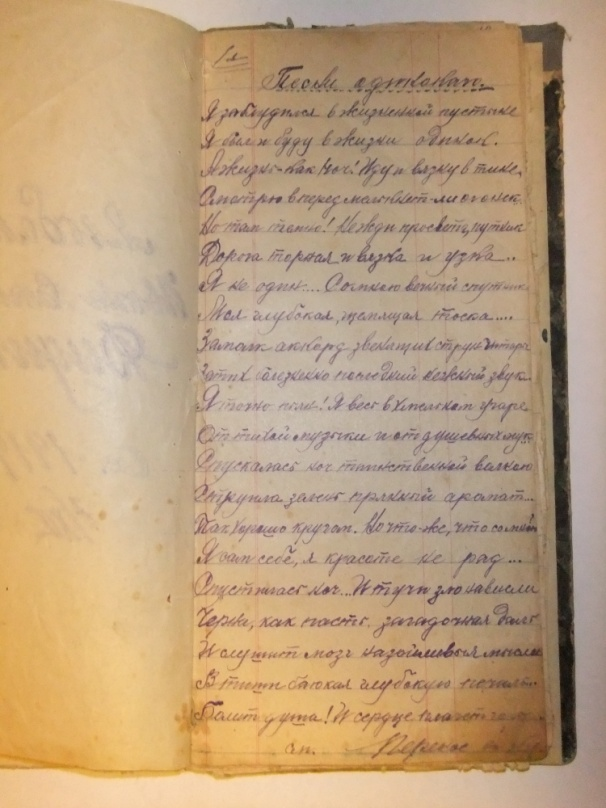 1я
Песнь одинокаго.
Я заблудился в жизненной пустыне
Я был и буду в жизни одинок.
А жизнь-как ночь! Иду и вязну в тине,
Смотрю вперед мелькнет-ли огонек.
Но там темно! Не жди просвета, путник
Дорога торная и вязка и узка..
Я не один... Со мною вечный спутник
Моя глубокая, щемящая тоска....
Замолк аккорд звенящих струн гитары
Затих болезненно последний нежный звук
Я точно пьян! Я весь в хмельном угаре
От тихой музыки и от душевных мук
Спускалась ночь таинственной волною
Струила зелень пряный аромат...
Так хорошо кругом. Но что-же, что со мной
Я сам себе, я красоте не рад...
Спустилась ночь... И тучи зло нависли
Черна, как пасть загадочная даль
И слушит мозг назойливыя мысли
В тиши баюкая глубокую печаль..
Болит душа! И сердце плачет